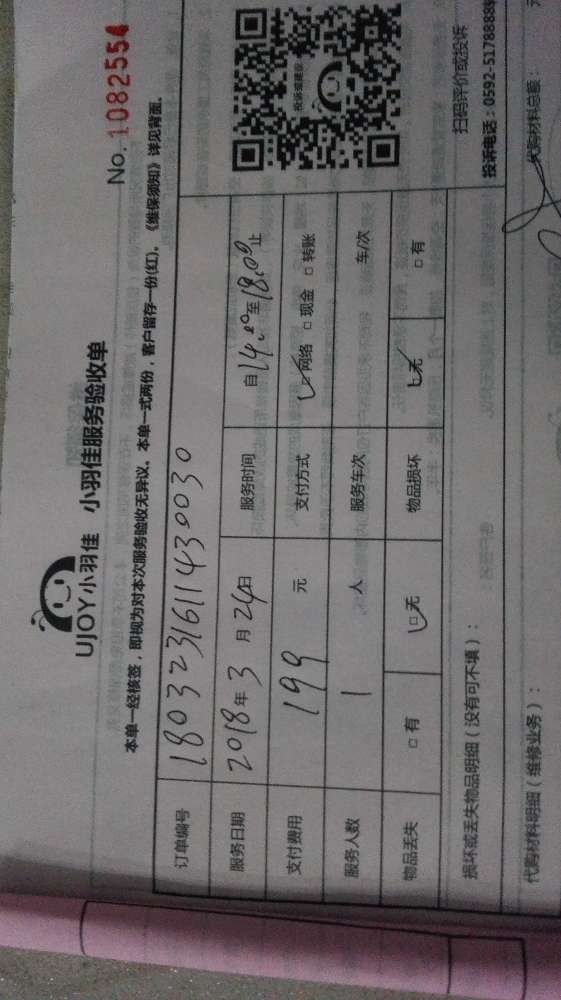 UJOY小羽佳 小羽佳服务验收单
No. 1082554
本单一经核签，即视为对本次服务验收无异议。本单一式两份，客户留存一份(红)。《维保须知》详见背面。
订单编号 1803231611430030
服务日期 2018年3月24日 服务时间 自14.00至18.00止
支付费用 199 元 支付方式 ☑网络 □现金 □转账
服务人数 1 人 服务车次 车/次
物品丢失 □有 ☑无 物品损坏 ☑无 □有
损坏或丢失物品明细（没有可不填）：
扫码评价或投诉
投诉电话：0592-5178888
代购材料明细（维修业务）： 代购材料总额： 元